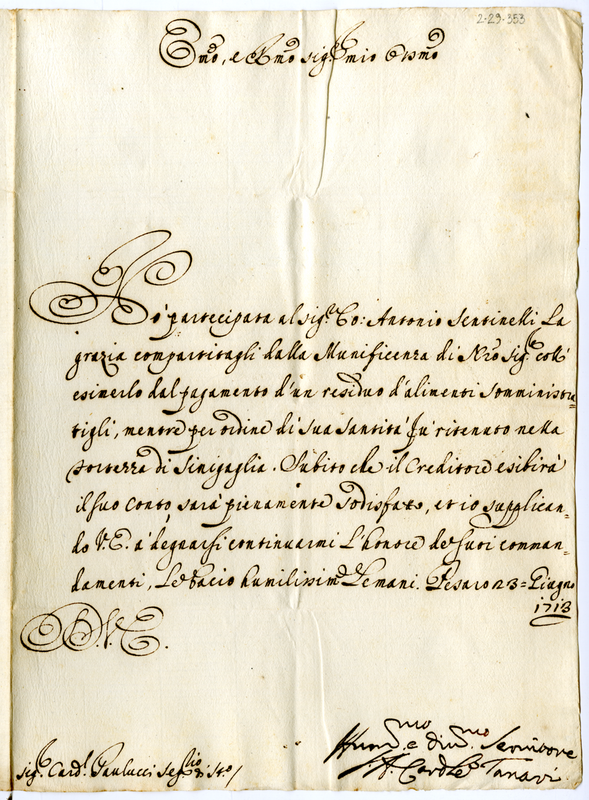 2-29-353
Emo, e Rmo sigr mio Ossmo
Hò partecipata al sigr Co: Antonio Sentinelli La
grazia compartitagli dalla Munificenza di Nro Sigre coll'
esimerlo dal pagamento d'un residuo d'alimenti somministra=
tigli, mentre per ordine di sua Santità fù ritenuto nella
fortezza di Sinigaglia. Subito che il Creditore esibirà
il suo conto, sarà pienamente sodisfatto, et io supplican=
do V.E. à degnarsi continuarmi L'honore de suoi comman=
damenti, Le bacio humilissimte Le mani. Pesaro 23= Giugno
1713
D. V. E.
Humo e divmo Servitore
Cardle Tanari
sigr Cardl Paulucci Segrio di Sto /